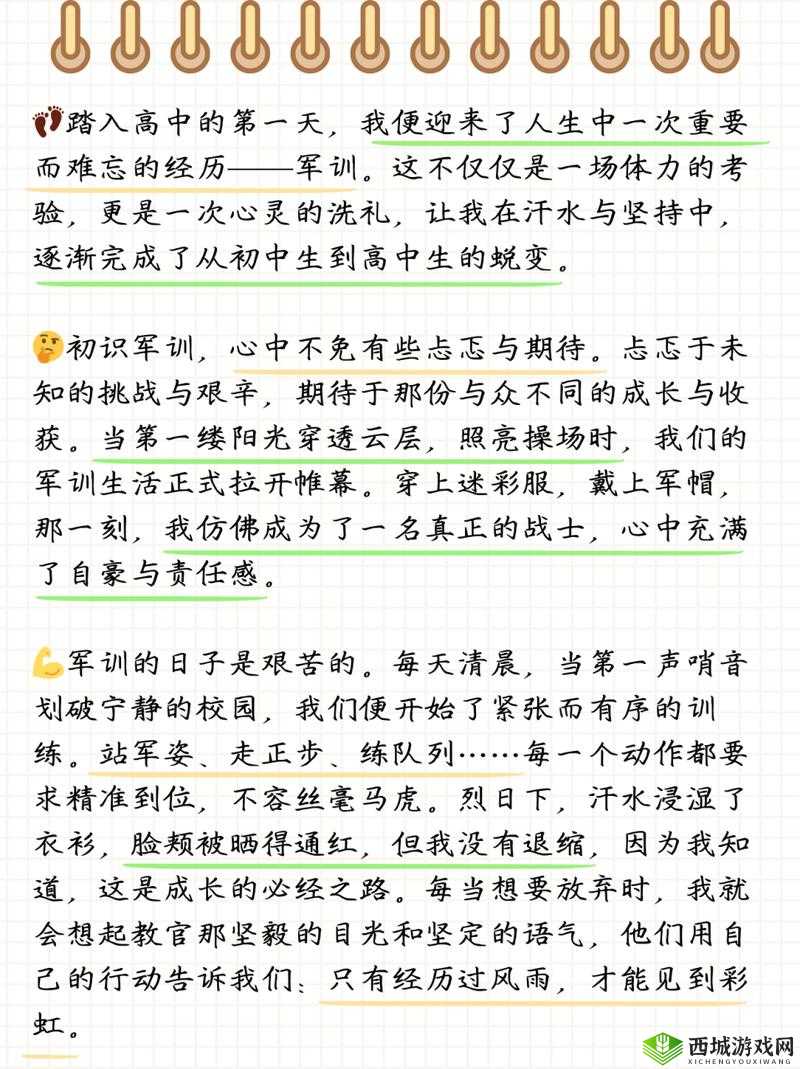 踏入高中的第一天，我便迎来了人生中一次重要
而难忘的经历——军训。这不仅仅是一场体力的考
验，更是一次心灵的洗礼，让我在汗水与坚持中，
逐渐完成了从初中生到高中生的蜕变。
初识军训，心中不免有些忐忑与期待。忐忑于未
知的挑战与艰辛，期待于那份与众不同的成长与收
获。当第一缕阳光穿透云层，照亮操场时，我们的
军训生活正式拉开帷幕。穿上迷彩服，戴上军帽，
那一刻，我仿佛成为了一名真正的战士，心中充满
了自豪与责任感。
军训的日子是艰苦的。每天清晨，当第一声哨音
划破宁静的校园，我们便开始了紧张而有序的训
练。站军姿、走正步、练队列……每一个动作都要
求精准到位，不容丝毫马虎。烈日下，汗水浸湿了
衣衫，脸颊被晒得通红，但我没有退缩，因为我知
道，这是成长的必经之路。每当想要放弃时，我就
会想起教官那坚毅的目光和坚定的语气，他们用自
己的行动告诉我们：只有经历过风雨，才能见到彩
虹。
西城游戏网
XICHENGYOUXIWANG